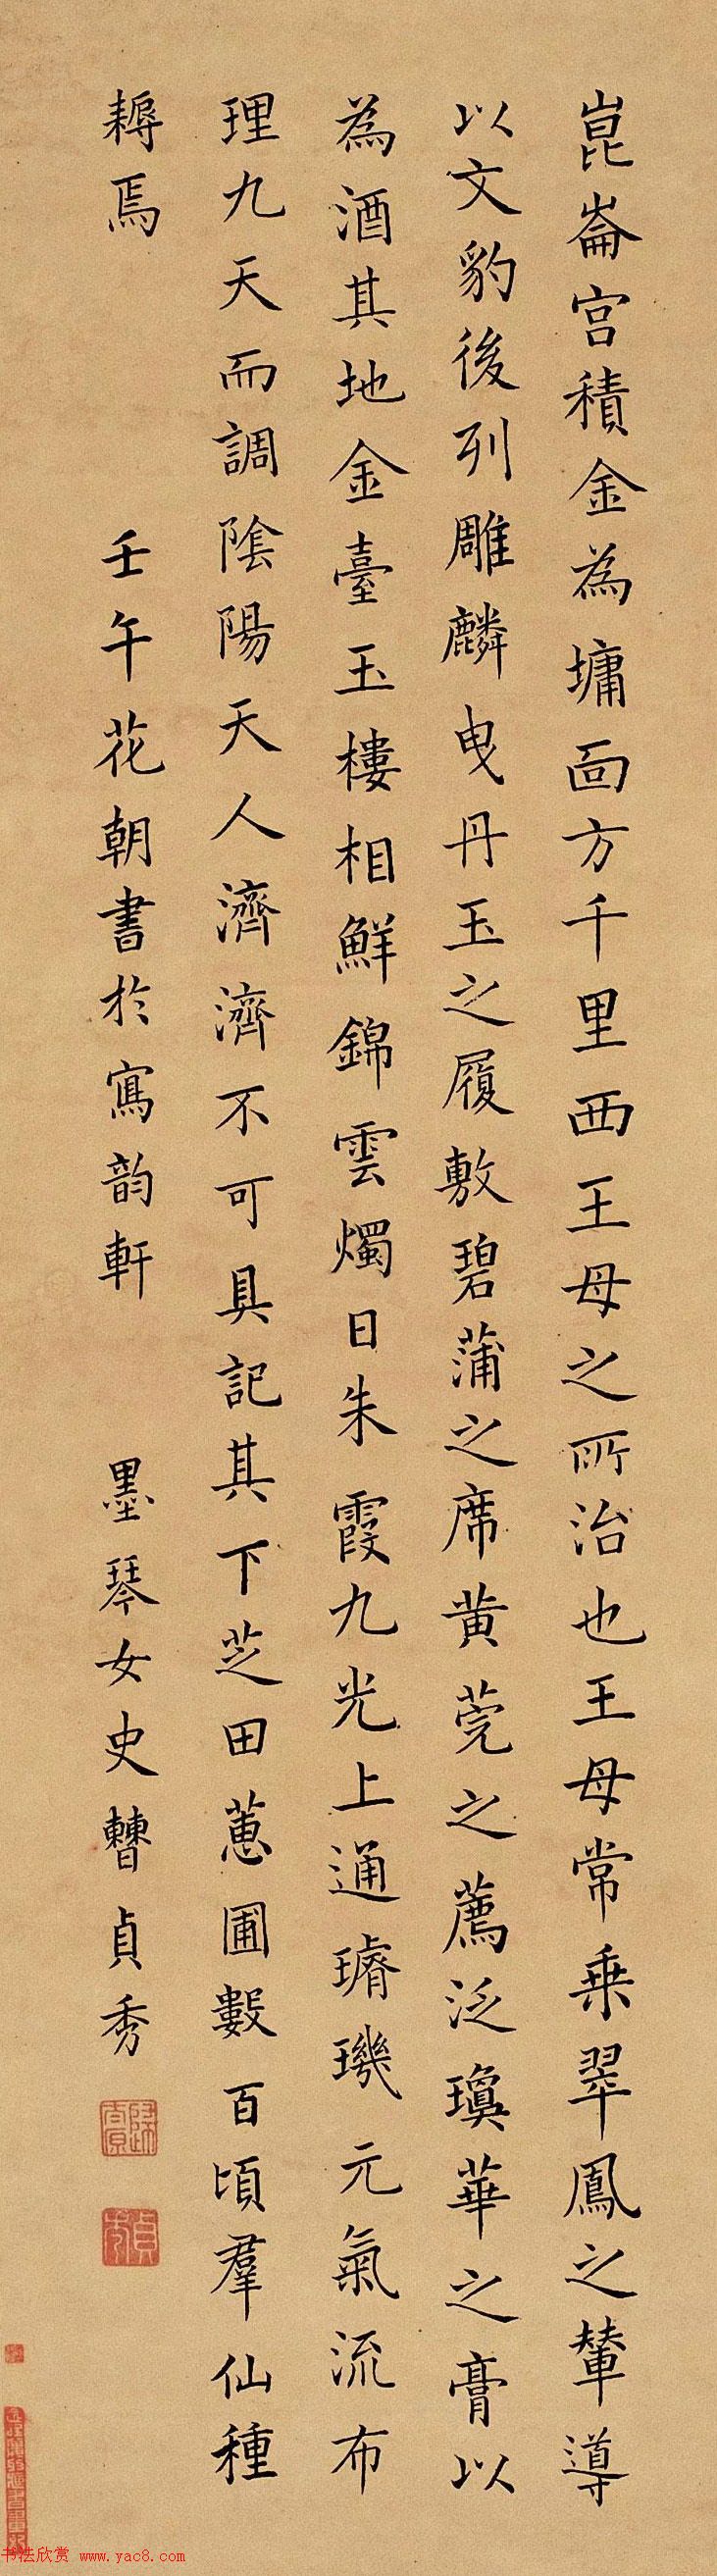 崑崙宮積金為墉面方千里西王母之所治也王母常乗翠鳳之輦導
以文豹後列雕麟曳丹玉之履敷碧蒲之席黄莞之薦泛瓊華之膏以
為酒其地金臺玉樓相鮮錦雲燭日朱霞九光上通璿璣元氣流布
理九天而調陰陽天人濟濟不可具記其下芝田蕙圃數百頃羣仙種
耨焉
壬午花朝書於寫韵軒
墨琴女史曹貞秀
貞秀
书法欣赏 www.yac8.com